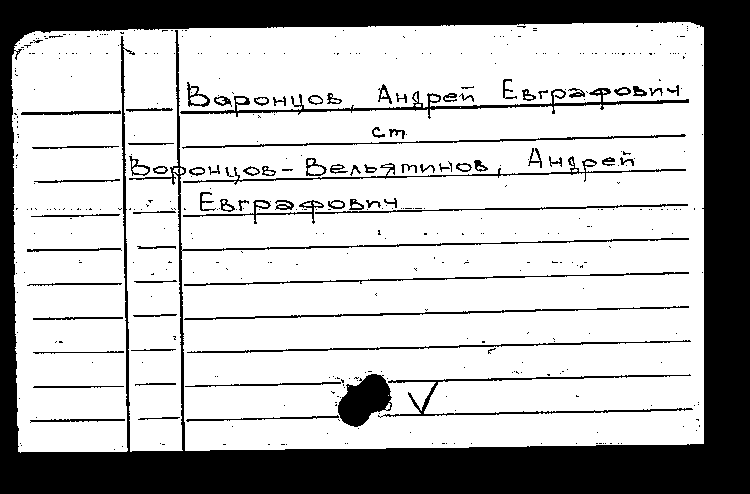 Воронцов, Андрей Евграфович
ст
Воронцов-Вельятинов, Андрей
Евграфович
V